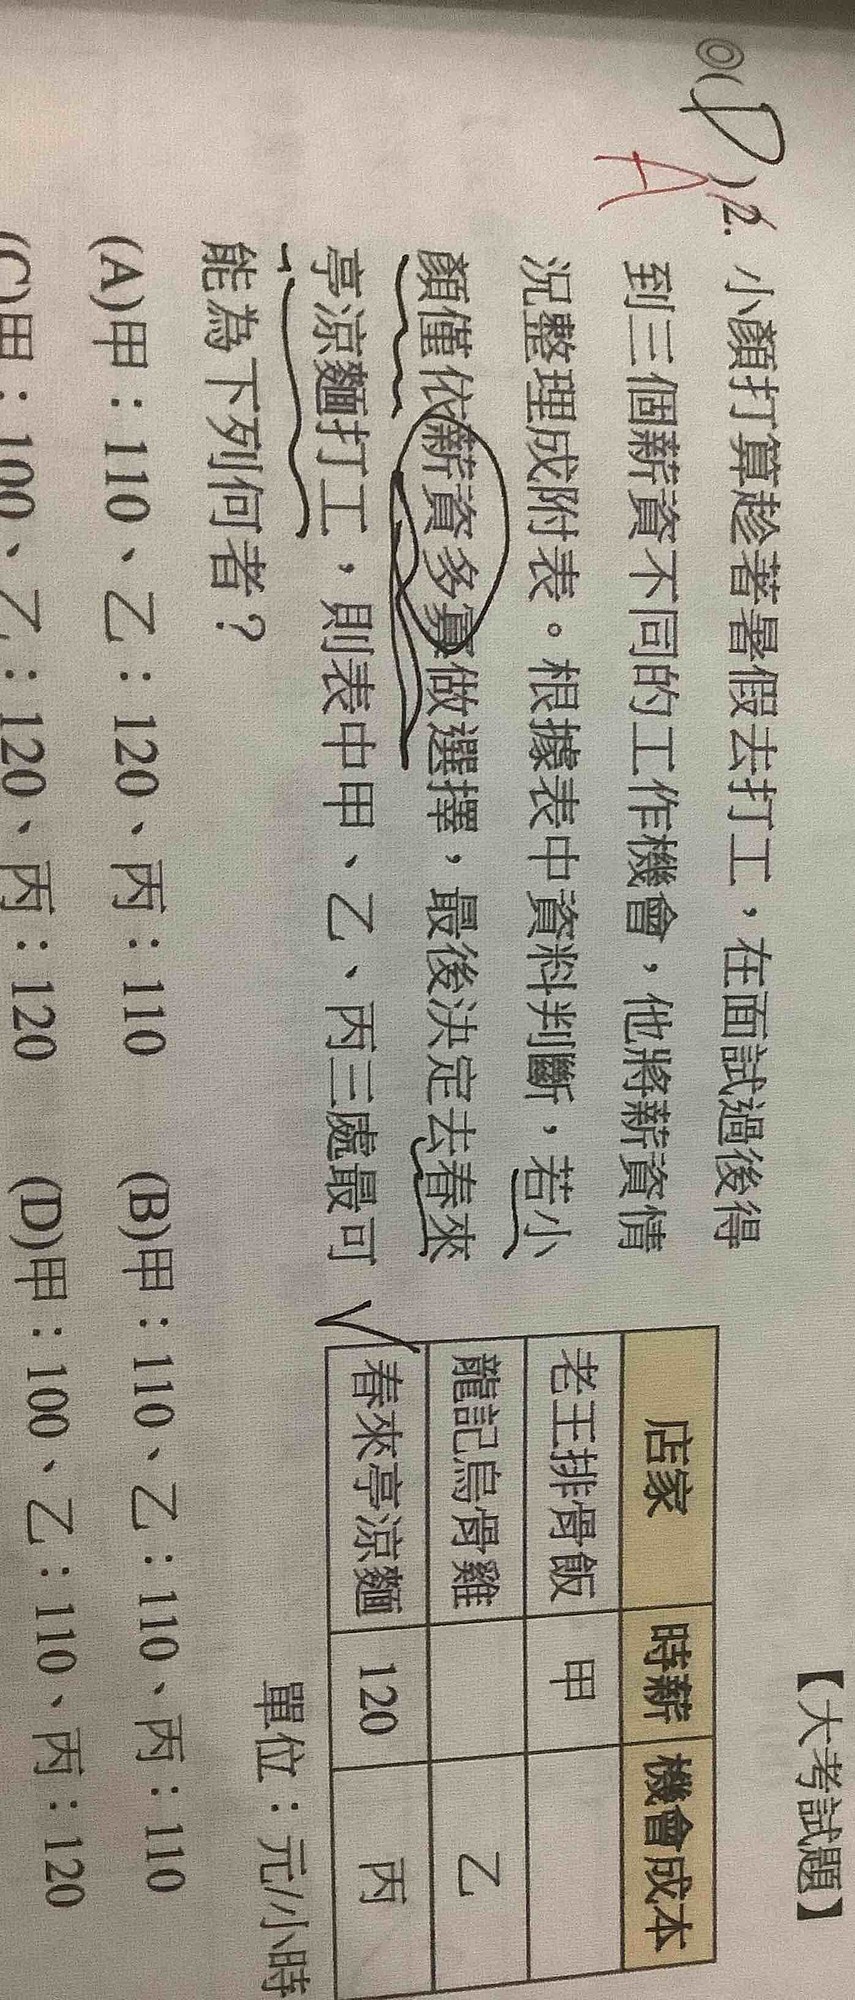 【大考試題】
◎( D )2. 小顏打算趁著暑假去打工，在面試過後得
A
到三個薪資不同的工作機會，他將薪資情
況整理成附表。根據表中資料判斷，若小
顏僅依薪資多寡做選擇，最後決定去春來
亭涼麵打工，則表中甲、乙、丙三處最可
能為下列何者？
店家 時薪 機會成本
老王排骨飯 甲
龍記烏骨雞 乙
春來亭涼麵 120 丙
單位：元/小時
(A)甲：110、乙：120、丙：110 (B)甲：110、乙：110、丙：110
(C)甲：100、乙：120、丙：120 (D)甲：100、乙：110、丙：120